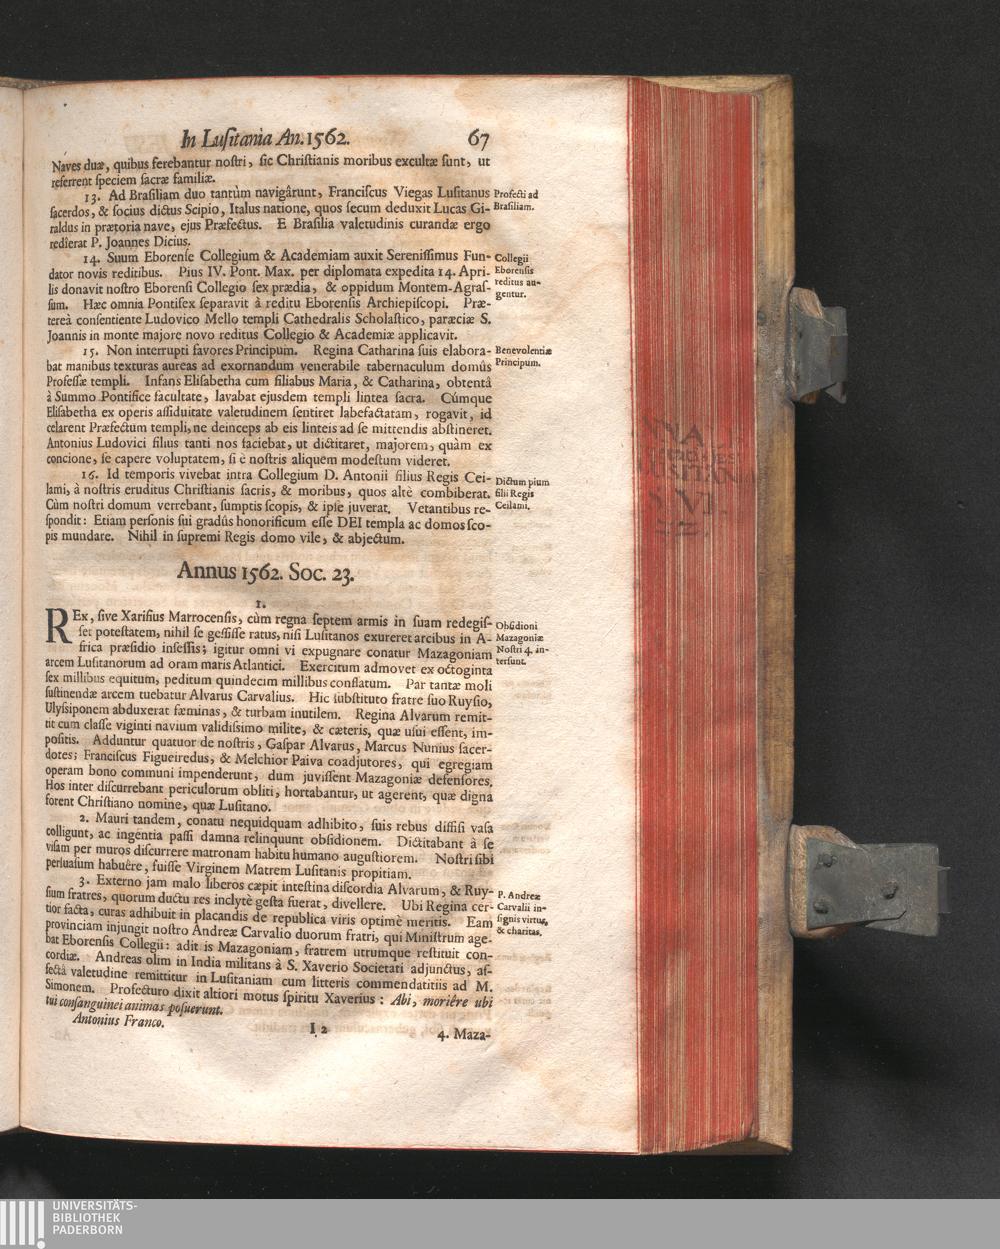 In Luſitania An. 1562. 67
Naves duæ, quibus ferebantur noſtri, ſic Chriſtianis moribus excultæ ſunt, ut
referrent ſpeciem ſacræ familiæ.
13. Ad Braſiliam duo tantùm navigârunt, Franciſcus Viegas Luſitanus
ſacerdos, & ſocius dictus Scipio, Italus natione, quos ſecum deduxit Lucas Gi-
raldus in prætoria nave, ejus Præfectus. E Braſilia valetudinis curandæ ergo
redîerat P. Joannes Dicius.
Profecti ad
Braſiliam.
14. Suum Eborenſe Collegium & Academiam auxit Sereniſſimus Fun-
dator novis reditibus. Pius IV. Pont. Max. per diplomata expedita 14. Apri-
lis donavit noſtro Eborenſi Collegio ſex prædia, & oppidum Montem-Agraſ-
ſum. Hæc omnia Pontifex ſeparavit à reditu Eborenſis Archiepiſcopi. Præ-
tereà conſentiente Ludovico Mello templi Cathedralis Scholaſtico, paræciæ S.
Joannis in monte majore novo reditus Collegio & Academiæ applicavit.
Collegii
Eborenſis
reditus au-
gentur.
15. Non interrupti favores Principum. Regina Catharina ſuis elabora-
bat manibus texturas aureas ad exornandum venerabile tabernaculum domûs
Profeſſæ templi. Infans Eliſabetha cum filiabus Maria, & Catharina, obtentâ
à Summo Pontifice facultate, lavabat ejusdem templi lintea ſacra. Cúmque
Eliſabetha ex operis aſſiduitate valetudinem ſentiret labefactatam, rogavit, id
celarent Præfectum templi, ne deinceps ab eis linteis ad ſe mittendis abſtineret.
Antonius Ludovici filius tanti nos faciebat, ut dictitaret, majorem, quàm ex
concione, ſe capere voluptatem, ſi è noſtris aliquem modeſtum videret.
Benevolentiæ
Principum.
16. Id temporis vivebat intra Collegium D. Antonii filius Regis Cei-
lami, à noſtris eruditus Chriſtianis ſacris, & moribus, quos altè combiberat.
Cùm noſtri domum verrebant, ſumptis ſcopis, & ipſe juverat. Vetantibus re-
ſpondit: Etiam perſonis ſui gradûs honorificum eſſe DEI templa ac domos ſco-
pis mundare. Nihil in ſupremi Regis domo vile, & abjectum.
Dictum pium
filii Regis
Ceilami.
Annus 1562. Soc. 23.
1.
REx, ſive Xarifius Marrocenſis, cùm regna ſeptem armis in ſuam redegiſ-
ſet poteſtatem, nihil ſe geſſiſſe ratus, niſi Luſitanos exureret arcibus in A-
frica præſidio inſeſſis; igitur omni vi expugnare conatur Mazagoniam
arcem Luſitanorum ad oram maris Atlantici. Exercitum admovet ex octoginta
ſex millibus equitum, peditum quindecim millibus conflatum. Par tantæ moli
ſuſtinendæ arcem tuebatur Alvarus Carvalius. Hic ſubſtituto fratre ſuo Ruyſio,
Ulyſsiponem abduxerat fæminas, & turbam inutilem. Regina Alvarum remit-
tit cum claſſe viginti navium validiſsimo milite, & cæteris, quæ uſui eſſent, im-
poſitis. Adduntur quatuor de noſtris, Gaſpar Alvarus, Marcus Nunius ſacer-
dotes; Franciſcus Figueiredus, & Melchior Paiva coadjutores, qui egregiam
operam bono communi impenderunt, dum juviſſent Mazagoniæ defenſores.
Hos inter diſcurrebant periculorum obliti, hortabantur, ut agerent, quæ digna
forent Chriſtiano nomine, quæ Luſitano.
Obſidioni
Mazagoniæ
Noſtri 4. in-
terſunt.
2. Mauri tandem, conatu nequidquam adhibito, ſuis rebus diffiſi vaſa
colligunt, ac ingentia paſſi damna relinquunt obſidionem. Dictitabant à ſe
viſam per muros diſcurrere matronam habitu humano auguſtiorem. Noſtri ſibi
perſuaſum habuêre, fuiſſe Virginem Matrem Luſitanis propitiam.
3. Externo jam malo liberos cæpit inteſtina diſcordia Alvarum, & Ruy-
ſium fratres, quorum ductu res inclytè geſta fuerat, divellere. Ubi Regina cer-
tior facta, curas adhibuit in placandis de republica viris optimè meritis. Eam
provinciam injungit noſtro Andreæ Carvalio duorum fratri, qui Miniſtrum age-
bat Eborenſis Collegii: adit is Mazagoniam, fratrem utrumque reſtituit con-
cordiæ. Andreas olim in India militans à S. Xaverio Societati adjunctus, aſ-
fectâ valetudine remittitur in Luſitaniam cum litteris commendatitiis ad M.
Simonem. Profecturo dixit altiori motus ſpiritu Xaverius: Abi, moriêre ubi
tui conſanguinei animas poſuerunt.
P. Andreæ
Carvalii in-
ſignis virtus,
& charitas.
Antonius Franco. I 2 4. Maza-
UNIVERSITÄTS-
BIBLIOTHEK
PADERBORN